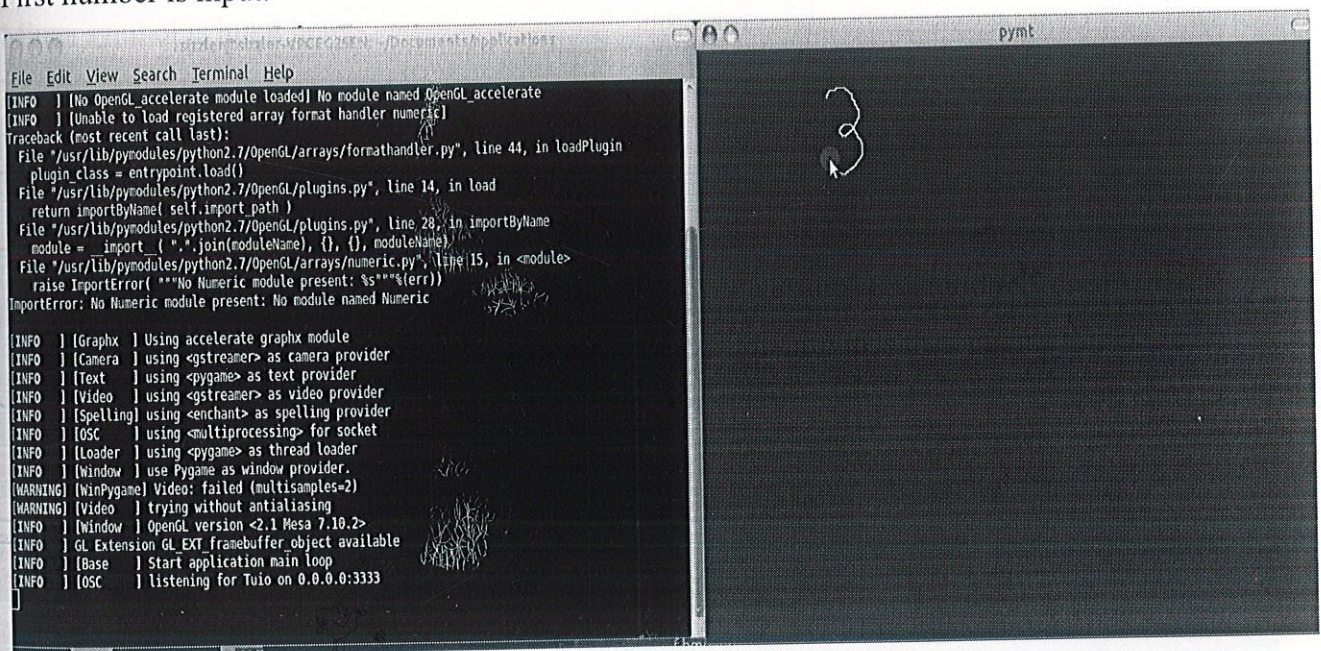 First number is input.
File Edit View Search Terminal Help
[INFO   ] [No OpenGL_accelerate module loaded] No module named OpenGL_accelerate
[INFO   ] [Unable to load registered array format handler numeric]
Traceback (most recent call last):
  File "/usr/lib/pymodules/python2.7/OpenGL/arrays/formathandler.py", line 44, in loadPlugin
    plugin_class = entrypoint.load()
  File "/usr/lib/pymodules/python2.7/OpenGL/plugins.py", line 14, in load
    return importByName( self.import_path )
  File "/usr/lib/pymodules/python2.7/OpenGL/plugins.py", line 28, in importByName
    module = __import__( ".".join(moduleName), {}, {}, moduleName)
  File "/usr/lib/pymodules/python2.7/OpenGL/arrays/numeric.py", line 15, in <module>
    raise ImportError( """No Numeric module present: %s"""%(err))
ImportError: No Numeric module present: No module named Numeric
[INFO   ] [Graphx  ] Using accelerate graphx module
[INFO   ] [Camera  ] using <gstreamer> as camera provider
[INFO   ] [Text    ] using <pygame> as text provider
[INFO   ] [Video   ] using <gstreamer> as video provider
[INFO   ] [Spelling] using <enchant> as spelling provider
[INFO   ] [OSC     ] using <multiprocessing> for socket
[INFO   ] [Loader  ] using <pygame> as thread loader
[INFO   ] [Window  ] use Pygame as window provider.
[WARNING] [WinPygame] Video: failed (multisamples=2)
[WARNING] [Video   ] trying without antialiasing
[INFO   ] [Window  ] OpenGL version <2.1 Mesa 7.10.2>
[INFO   ] GL Extension GL_EXT_framebuffer_object available
[INFO   ] [Base    ] Start application main loop
[INFO   ] [OSC     ] listening for Tuio on 0.0.0.0:3333
pymt
3